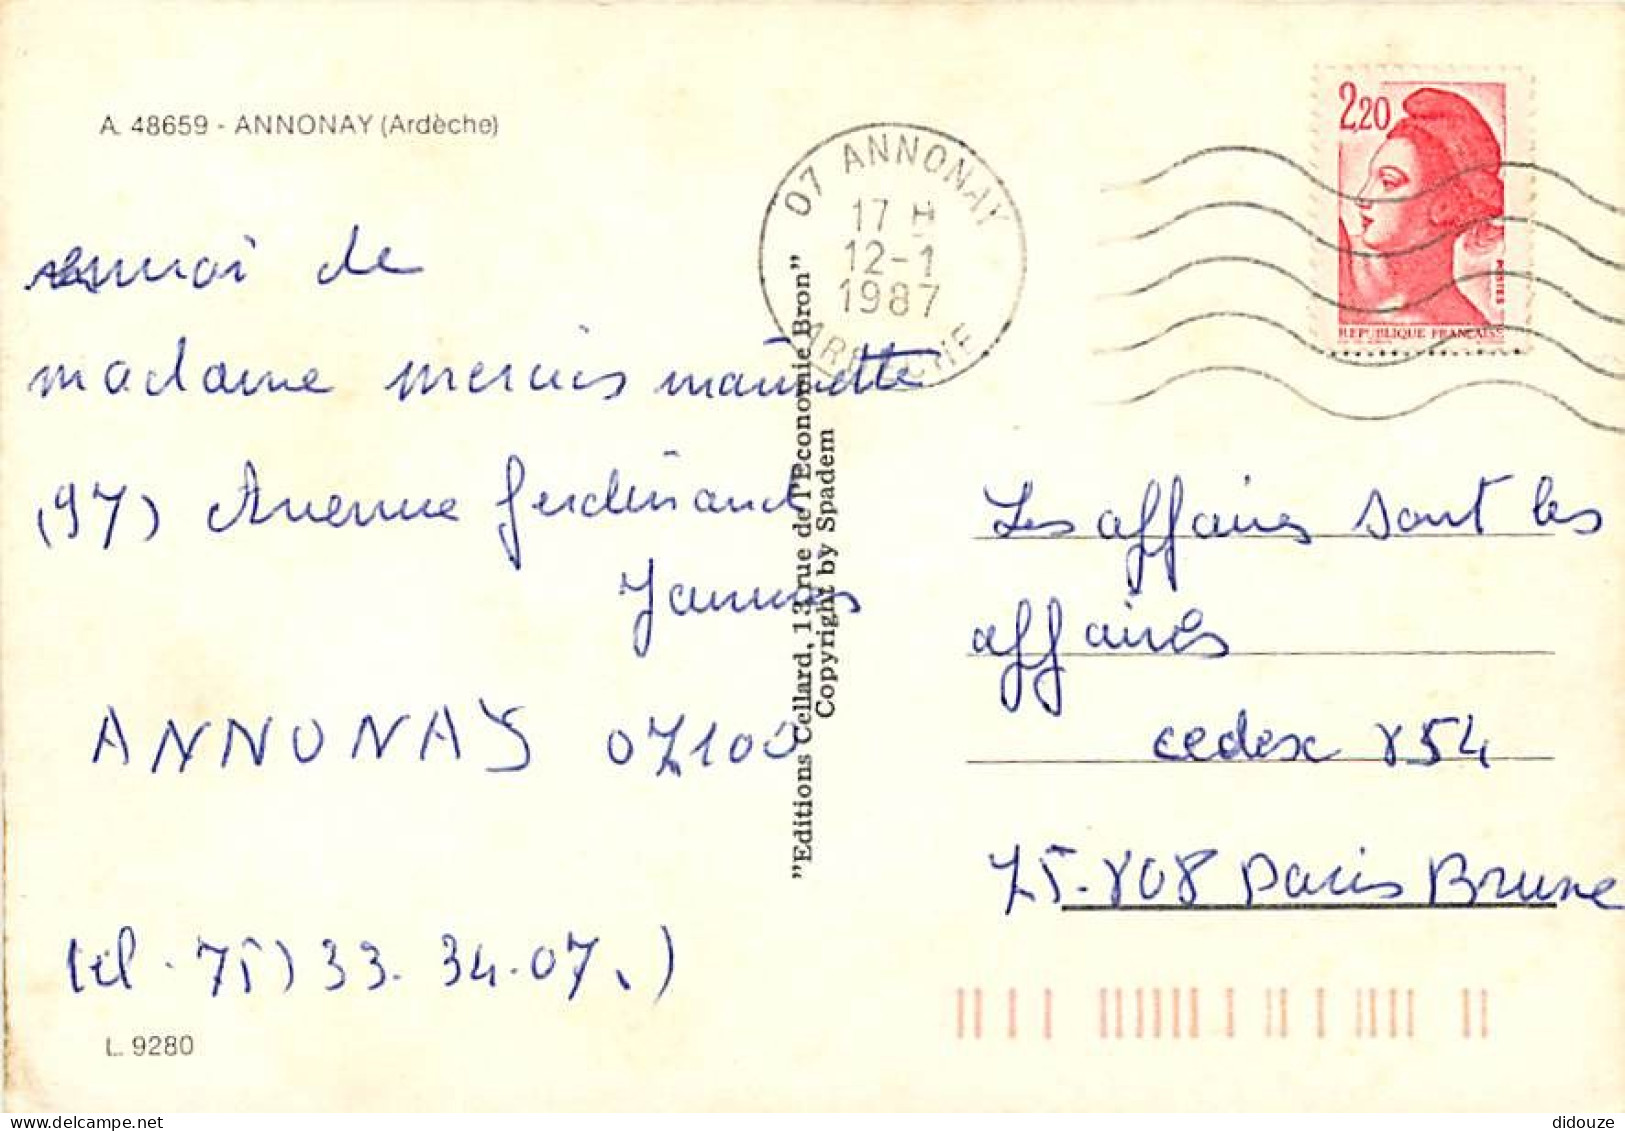 A. 48659 - ANNONAY (Ardèche)
07 ANNONAY
17 H
12-1
1987
ARDECHE
2,20
POSTES
REPUBLIQUE FRANÇAISE
envoi de
madame mercier mauricette
(97) Avenue ferdinand
Janvier
ANNONAY 07100
tel. 75) 33. 34.07.)
L. 9280
"Editions Cellard, 13 rue de l'Economie Bron"
Copyright by Spadem
Les affaires sont les
affaires
cedex 854
75.808 Paris Brune
didouze